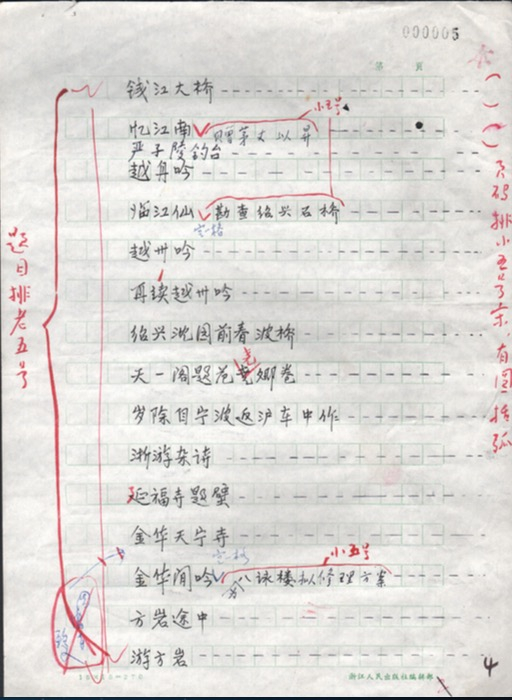 000005
第 页
钱江大桥
忆江南 赠茅大以昇
小五号
严子陵钓台
越舟吟
临江仙 勘查绍兴石桥
空格
越州吟
再续越州吟
绍兴沈园前春波桥
天一阁题范尧卿卷
尧
岁除自宁波返沪车中作
浙游杂诗
延福寺题壁
金华天宁寺
空格
小五号
金华闲吟 为八咏楼拟修理方案
方岩途中
游方岩
题目排老五号
页码排小五号宋,有圆括弧
浙江人民出版社编辑部
4